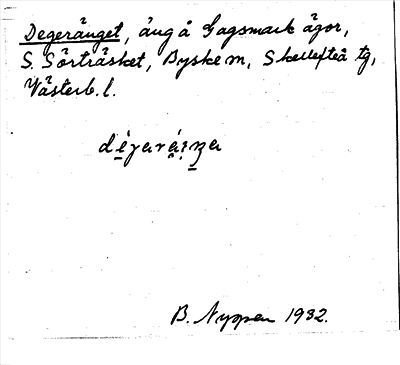 Degeränget, äng å Gagsmark ägor,
S. Sörträsket, Byske sn, Skellefteå tg,
Västerb. l.
B. Nyman 1932.